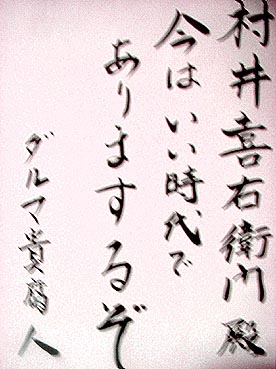 村井喜右衛門殿
今はいい時代で
ありまするぞ
ダルマ貴腐人